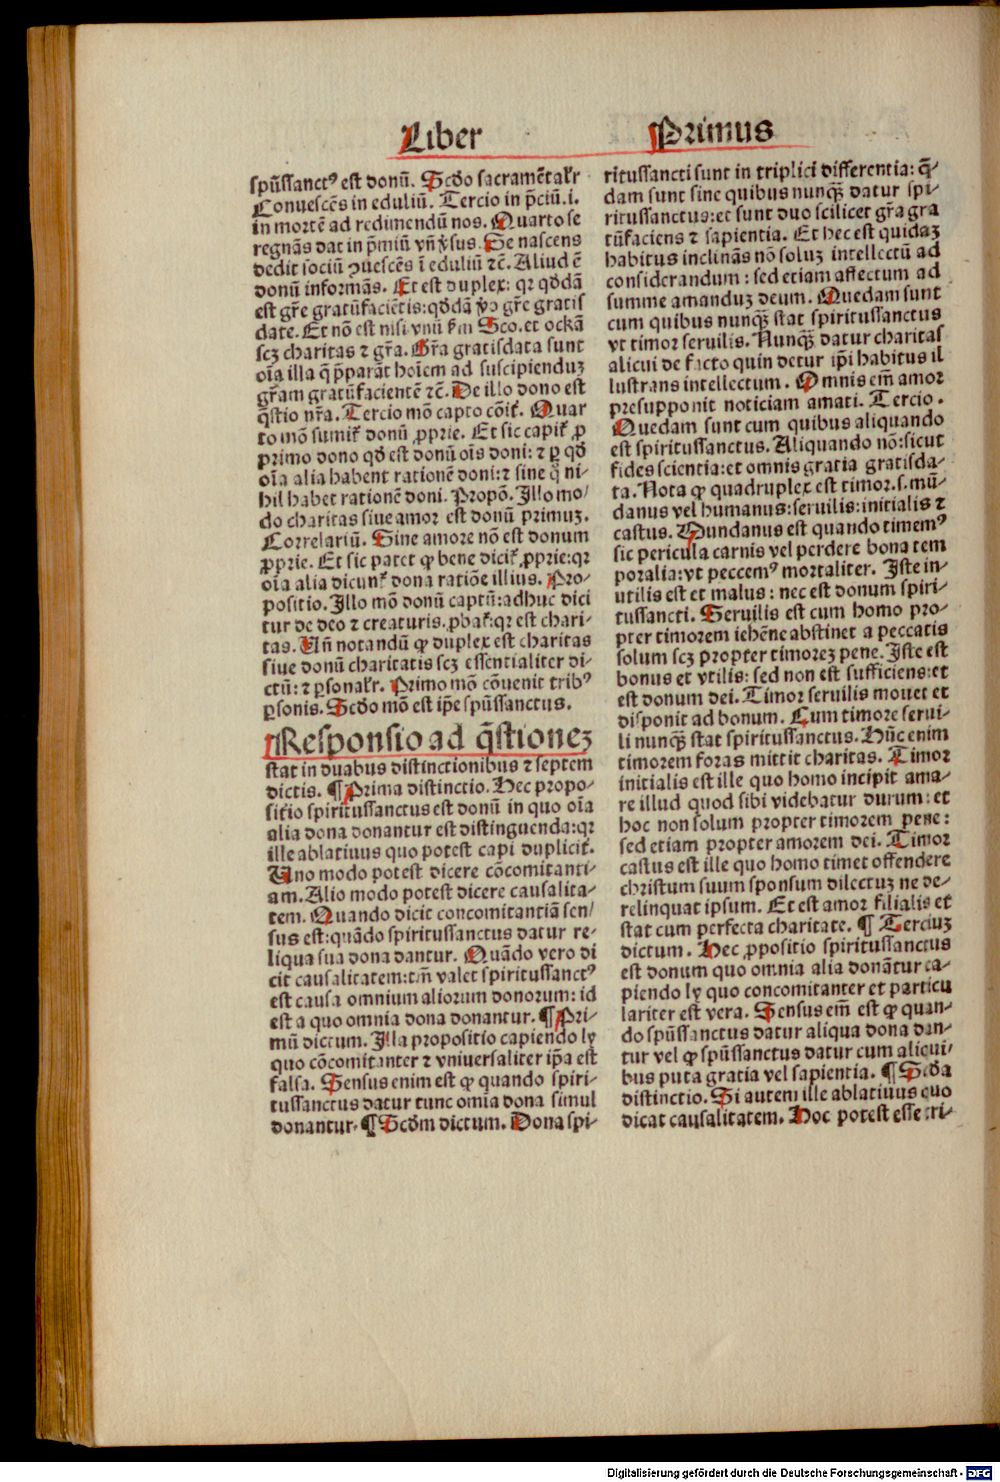 Liber Primus
spūssanctꝰ est donū. Scďo sacramētalr̄
Conuescēs in eduliū. Tercio in p̄ciū.i.
in mortē ad redimendū nos. Quarto se
regnās dat in p̄miū vn̄ v̓sus. Se nascens
dedit sociū ꝯuescēs ī eduliū ⁊c̄. Aliud ē
donū informās. Et est duplex: qr qďdā
est gr̄e gratūfaciētis: qďdā v̓o gr̄e gratis
date. Et nō est nisi vnū ẜm Sco. et ockā
scꝫ charitas ⁊ gr̄a. Gr̄a gratisdata sunt
oīa illa q̄ p̄parāt hoīem ad suscipienduꝫ
gr̄am gratūfacientē ⁊c̄. De illo dono est
q̄stio nr̄a. Tercio mō capto cōit̄. Quar
to mō sumit̄ donū ꝓprie. Et sic capit̄ ꝓ
primo dono qď est donū oīs doni: ⁊ ꝑ qď
oīa alia habent rationē doni: ⁊ sine q̄ ni-
hil habet rationē doni. Propō. Illo mo/
do charitas siue amor est donū primuꝫ.
Correlariū. Sine amore nō est donum
ꝓprie. Et sic patet ꝙ bene dicit̄ ꝓprie: qr
oīa alia dicunt̄ dona ratiōe illius. Pro-
positio. Illo mō donū captū: adhuc dici
tur de deo ⁊ creaturis. ꝓbat̄: qr est chari-
tas. Un̄ notandū ꝙ duplex est charitas
siue donū charitatis scꝫ essentialiter di-
ctū: ⁊ ꝑsonalr̄. Primo mō cōuenit tribꝰ
ꝑsonis. Scďo mō est ip̄e spūssanctus.
Responsio ad q̄stioneꝫ
stat in duabus distinctionibus ⁊ septem
dictis. ¶ Prima distinctio. Hec propo-
sitio spiritussanctus est donū in quo oīa
alia dona donantur est distinguenda: qr
ille ablatiuus quo potest capi duplicit̄.
Uno modo potest dicere cōcomitanti-
am. Alio modo potest dicere causalita-
tem. Quando dicit concomitantiā sen/
sus est: quādo spiritussanctus datur re-
liqua sua dona dantur. Quādo vero di
cit causalitatem: tm̄ valet spiritussanctꝰ
est causa omnium aliorum donorum: id
est a quo omnia dona donantur. ¶ Pri-
mū dictum. Illa propositio capiendo ly
quo cōcomitanter ⁊ vniuersaliter ip̄a est
falsa. Sensus enim est ꝙ quando spiri-
tussanctus datur tunc omnia dona simul
donantur. ¶ Scďm dictum. Dona spi-
ritussancti sunt in triplici differentia: q̄-
dam sunt sine quibus nunqꝫ̄ datur spi-
ritussanctus: et sunt duo scilicet gr̄a gra
tūfaciens ⁊ sapientia. Et hec est quidaꝫ
habitus inclinās nō soluꝫ intellectū ad
considerandum: sed etiam affectum ad
summe amanduꝫ deum. Quedam sunt
cum quibus nunqꝫ̄ stat spiritussanctus
vt timor seruilis. Nunqꝫ̄ datur charitas
alicui de facto quin detur ip̄i habitus il
lustrans intellectum. Omnis em̄ amor
presupponit noticiam amati. Tercio.
Quedam sunt cum quibus aliquando
est spiritussanctus. Aliquando nō: sicut
fides scientia: et omnis gratia gratisda-
ta. Nota ꝙ quadruplex est timor. s. mū-
danus vel humanus: seruilis: initialis ⁊
castus. Mundanus est quando timemꝰ
sic pericula carnis vel perdere bona tem
poralia: vt peccemꝰ mortaliter. Iste in-
utilis est et malus: nec est donum spiri-
tussancti. Seruilis est cum homo pro-
pter timorem iehēne abstinet a peccatis
solum scꝫ propter timoreꝫ pene. Iste est
bonus et vtilis: sed non est sufficiens: et
est donum dei. Timor seruilis mouet et
disponit ad bonum. Cum timore serui-
li nunqꝫ̄ stat spiritussanctus. Hūc enim
timorem foras mittit charitas. Timor
initialis est ille quo homo incipit ama-
re illud quod sibi videbatur durum: et
hoc non solum propter timorem pene:
sed etiam propter amorem dei. Timor
castus est ille quo homo timet offendere
christum suum sponsum dilectuꝫ ne de-
relinquat ipsum. Et est amor filialis et
stat cum perfecta charitate. ¶ Terciuꝫ
dictum. Hec ꝓpositio spiritussanctus
est donum quo omnia alia donātur ca-
piendo ly quo concomitanter et particu
lariter est vera. Sensus em̄ est ꝙ quan-
do spūssanctus datur aliqua dona dan-
tur vel ꝙ spūssanctus datur cum aliqui-
bus puta gratia vel sapientia. ¶ Scďa
distinctio. Si autem ille ablatiuus quo
dicat causalitatem. Hoc potest esse tri-
Digitalisierung gefördert durch die Deutsche Forschungsgemeinschaft - DFG